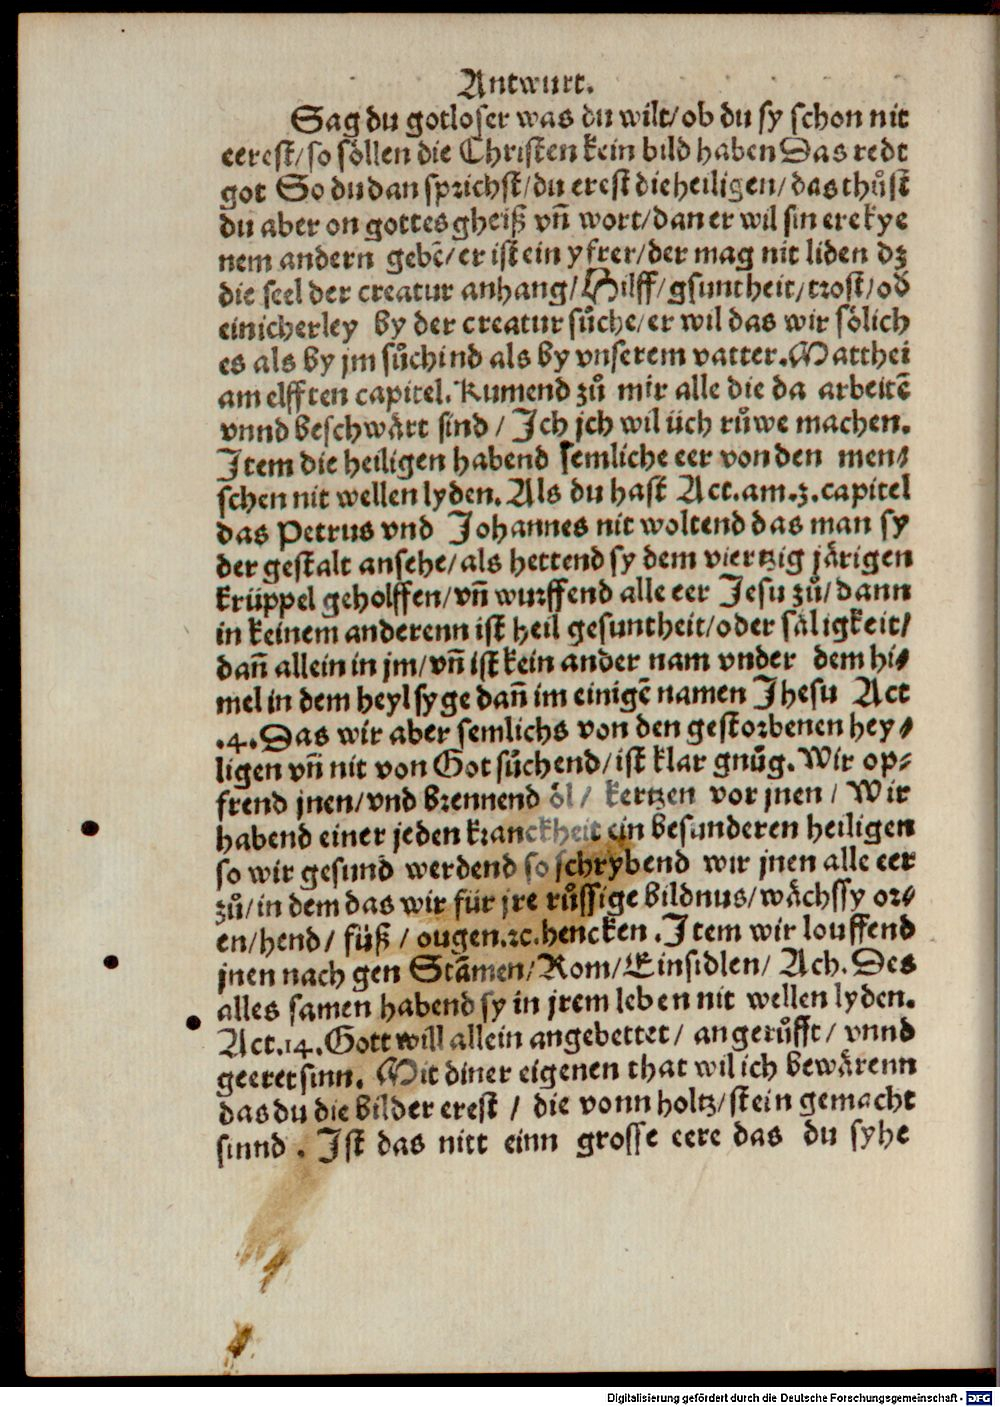 Antwurt.
Sag du gotloser was du wilt/ ob du sy schon nit
eerest/ so söllen die Christen kein bild haben Das redt
got So du dan sprichst/ du erest die heiligen/ das thůst
du aber on gottes gheiß vn̄ wort/ dan er wil sin ere kye
nem andern gebē/ er ist ein yfrer/ der mag nit liden dz
die seel der creatur anhang/ Hilff/ gsuntheit/ trost/ od
einicherley by der creatur sůche/ er wil das wir sölich
es als by jm sůchind als by vnserem vatter. Matthei
am elfften capitel. Kumend zů mir alle die da arbeitē
vnnd beschwärt sind / Ich jch wil üch růwe machen.
Item die heiligen habend semliche eer von den men⸗
schen nit wellen lyden. Als du hast Act. am .3. capitel
das Petrus vnd Johannes nit woltend das man sy
der gestalt ansehe/ als hettend sy dem viertzig järigen
krüppel geholffen/ vn̄ wurffend alle eer Jesu zů/ dann
in keinem anderenn ist heil gesuntheit/ oder säligkeit/
dan̄ allein in jm/ vn̄ ist kein ander nam vnder dem hi⸗
mel in dem heyl syge dan̄ im einigē namen Jhesu Act
.4. Das wir aber semlichs von den gestorbenen hey⸗
ligen vn̄ nit von Got sůchend/ ist klar gnůg. Wir op⸗
frend jnen/ vnd brennend öl/ kertzen vor jnen / Wir
habend einer jeden kranckheit ein besunderen heiligen
so wir gesund werdend so schrybend wir jnen alle eer
zů/ in dem das wir für jre růssige bildnus/ wächssy or⸗
en/ hend/ füß / ougen. ꝛc. hencken . Item wir louffend
jnen nach gen Stāmen/ Rom/ Einsidlen/ Ach. Des
alles samen habend sy in jrem leben nit wellen lyden.
Act. 14. Gott will allein angebettet/ angerůfft/ vnnd
geeret sinn. Mit diner eigenen that wil ich bewärenn
das du die bilder erest / die vonn holtz/ stein gemacht
sinnd . Ist das nitt einn grosse eere das du syhe
Digitalisierung gefördert durch die Deutsche Forschungsgemeinschaft - DFG